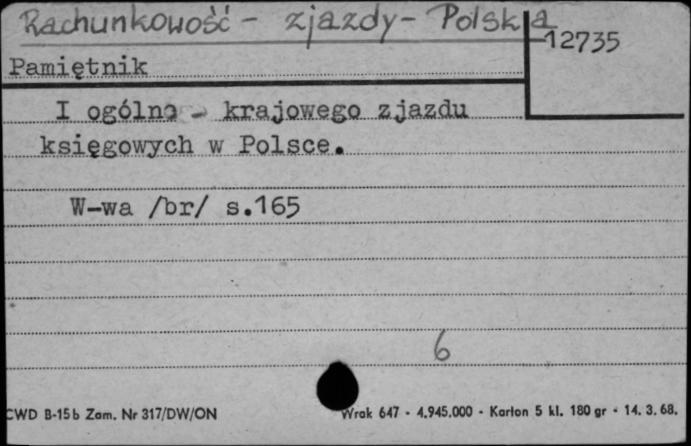 Rachunkowość - zjazdy - Polska
12735
Pamiętnik
I ogólno - krajowego zjazdu
księgowych w Polsce.
W-wa /br/ s.165
6
CWD B-15b Zam. Nr 317/DW/ON
Wrak 647 - 4.945.000 - Karton 5 kl. 180 gr - 14. 3. 68.